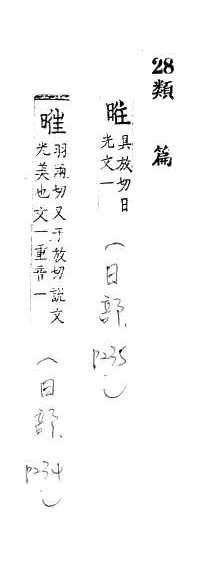 28類篇
暀 具放切日
光文一
(日部, p235)
暀 羽両切又于放切説文
光美也文一重音一
(日部, p234)